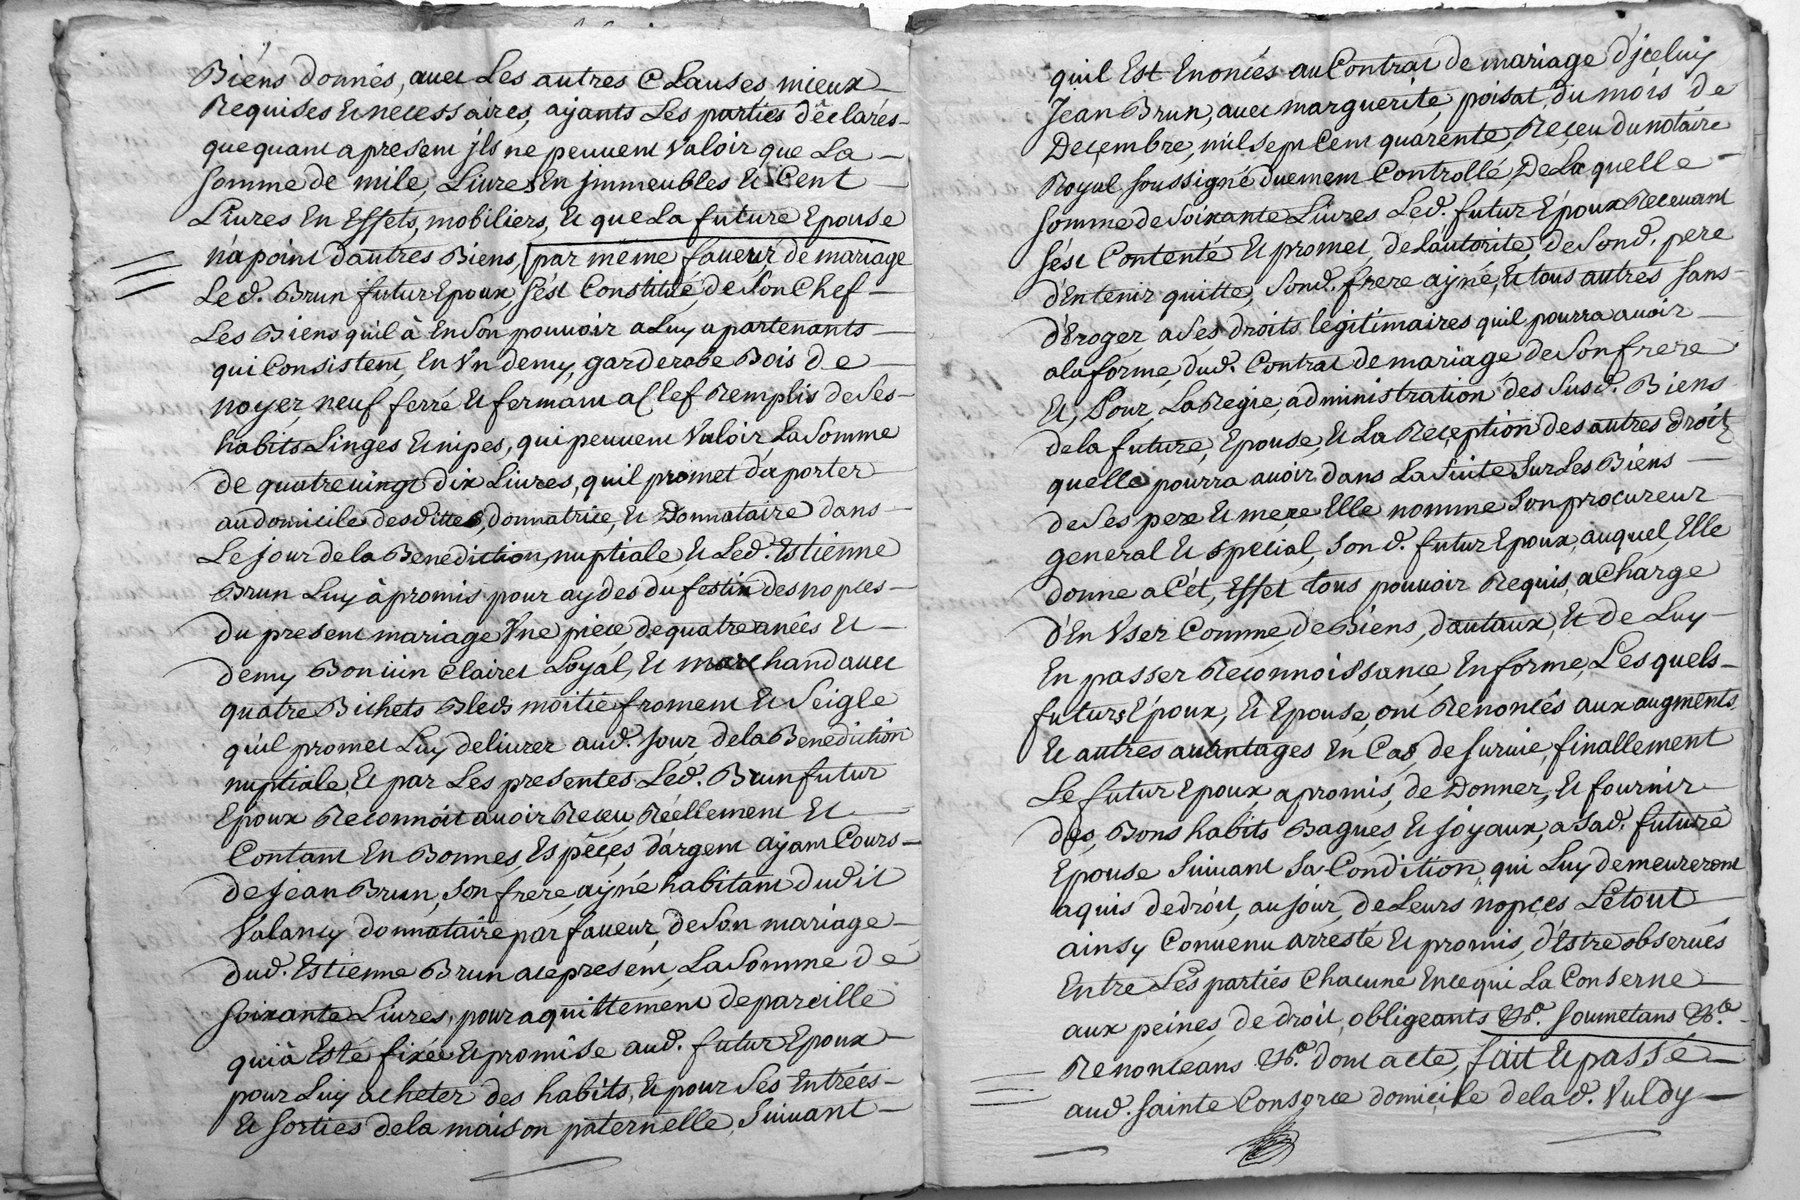 Biéns donnés, avec Les autres Clauses mieux
Requises et necessaires, ajants Les parties déclarés
que quant apresent jls ne peuvent Valoir que La
somme de mile, Livres En jmmeubles et Cent
Livres En Effets, mobiliers, et que La future Epouse
n'a point dautres Biens, par méme faveur de mariage
Led. Brun futur Epoux, s'ést Constitué, de Son Chef
Les Biens quil à En Son pouvoir a Luy apartenants
qui Consistent, En Vn demy, garderobe Bois de
noyer, neuf ferré et fermant a Clef Remplis de Ses
habits Linges et nipes, qui peuvent Valoir, La Somme
de quatrevingt dix Livres, quil promet d'aporter
au domicile desdittes, donnatrice, et Donnataire dans
Le jour de la Benediction, nuptiale, et Led. Estienne
Brun Luy à promis pour aydes du festin des nopces
du present mariage Vne piece de quatre anéés et
demy Bon vin Clairet Loyal, et marchand avec
quatre Bichets Bleds moitié froment et Seigle
qu'il promet Luy delivrer aud. jour, de la Benediction
nuptiale, et par Les presentes Led. Brun futur
Epoux Reconnoit avoir Receu, Réellement et
Contant En Bonnes, Espéçes d'argent ajant Cours
de jean Brun, Son frere, ayné habitant dudit
Valancy donnataire par faveur, de Son mariage
dud. Estienne Brun ace present, La Somme de
Soixante Livres, pour aquittement de pareille
qui à Esté fixée et promise aud. futur Epoux
pour Luy acheter des habits, et pour Ses Entrées
et sorties de la maison paternelle, Suivant
quil Est Enoncés au Contrat de mariage d'jceluy
Jean Brun, avec marguerite, poisat, du mois de
Decembre, mil sept Cent quarente, Receu du notaire
Royal soussigné duement Controllé, De La quelle
Somme de Soixante Livres Led. futur Epoux Recevant
s'ést Contenté et promet, de L'autorité, de Sond. pere
d'En tenir quitte, Sond. frere ayné, et tous autres Sans
d'Eroger, a Ses droits, legitimaires quil pourra avoir
a la forme, dud. Contrat de mariage, de Son frere
Et, Pour, La Regie, administration des Susd. Biens
de la future, Epouse, et La Reception des autres droits
quelle pourra avoir dans La Suite Sur Les Biens
de Ses pere et mere Elle nomme Son procureur
general et special, Sond. futur Epoux, auquel, Elle
donne a Cét, Effet tous pouvoir Requis, a Charge
d'En Vser Comme, de Biens, dautaux, et de Luy
En passer Reconnoissance, En forme, Les quels
futurs Epoux, et Epouse, ont Renoncés aux augments
et autres avantages En Cas, de survie, finallement
Le futur Epoux a promis, de Donner, et fournir
des, Bons habits Bagues, et joyaux, a Sad. future
Epouse suivant Sa Condition, qui Luy demeureront
aquis de droit, au jour, de Leurs nopces Le tout
ainsy Convenu arresté et promis, d'Estre observés
Entre Les parties Chacune En ce qui La Conserne
aux peines, de droit, obligeants &a. soumetans &a.
Renonceans &a. dont acte, fait et passé
aud. Sainte Consorce domicile de lad. Vuldy